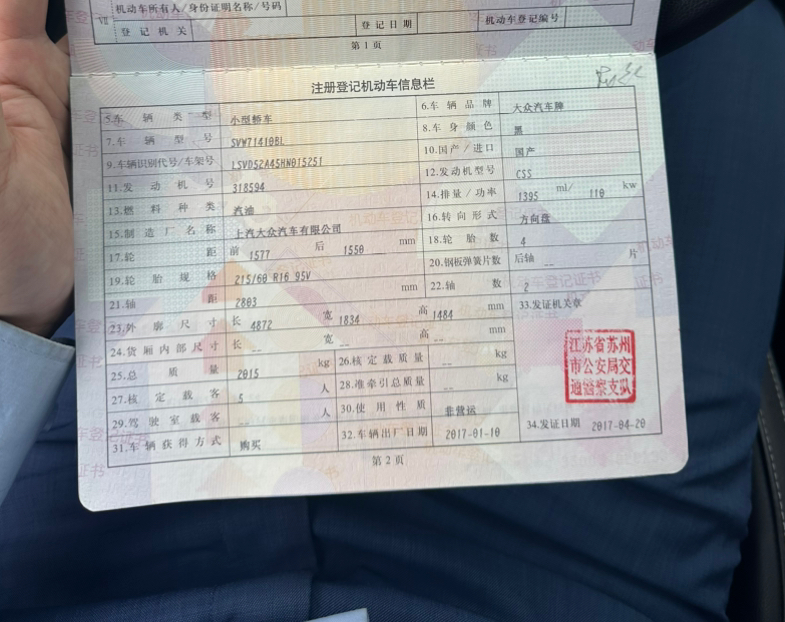 机动车所有人/身份证明名称/号码
VII 登记机关 登记日期 机动车登记编号
第1页
注册登记机动车信息栏
5.车辆类型 小型轿车 6.车辆品牌 大众汽车牌
7.车辆型号 SVW71410BL 8.车身颜色 黑
9.车辆识别代号/车架号 LSVD52A45HN015251 10.国产/进口 国产
11.发动机号 318594 12.发动机型号 CSS
13.燃料种类 汽油 14.排量/功率 1395 ml/ 110 kw
15.制造厂名称 上汽大众汽车有限公司 16.转向形式 方向盘
17.轮距 前 1577 后 1550 mm 18.轮胎数 4
19.轮胎规格 215/60 R16 95V 20.钢板弹簧片数 后轴 -- 片
21.轴距 2803 mm 22.轴数 2
23.外廓尺寸 长 4872 宽 1834 高 1484 mm 33.发证机关章
24.货厢内部尺寸 长 -- 宽 -- 高 -- mm
25.总质量 2015 kg 26.核定载质量 -- kg
27.核定载客 5 人 28.准牵引总质量 -- kg
江苏省苏州
市公安局交
通巡警支队
29.驾驶室载客 -- 人 30.使用性质 非营运
31.车辆获得方式 购买 32.车辆出厂日期 2017-01-10 34.发证日期 2017-04-20
第2页